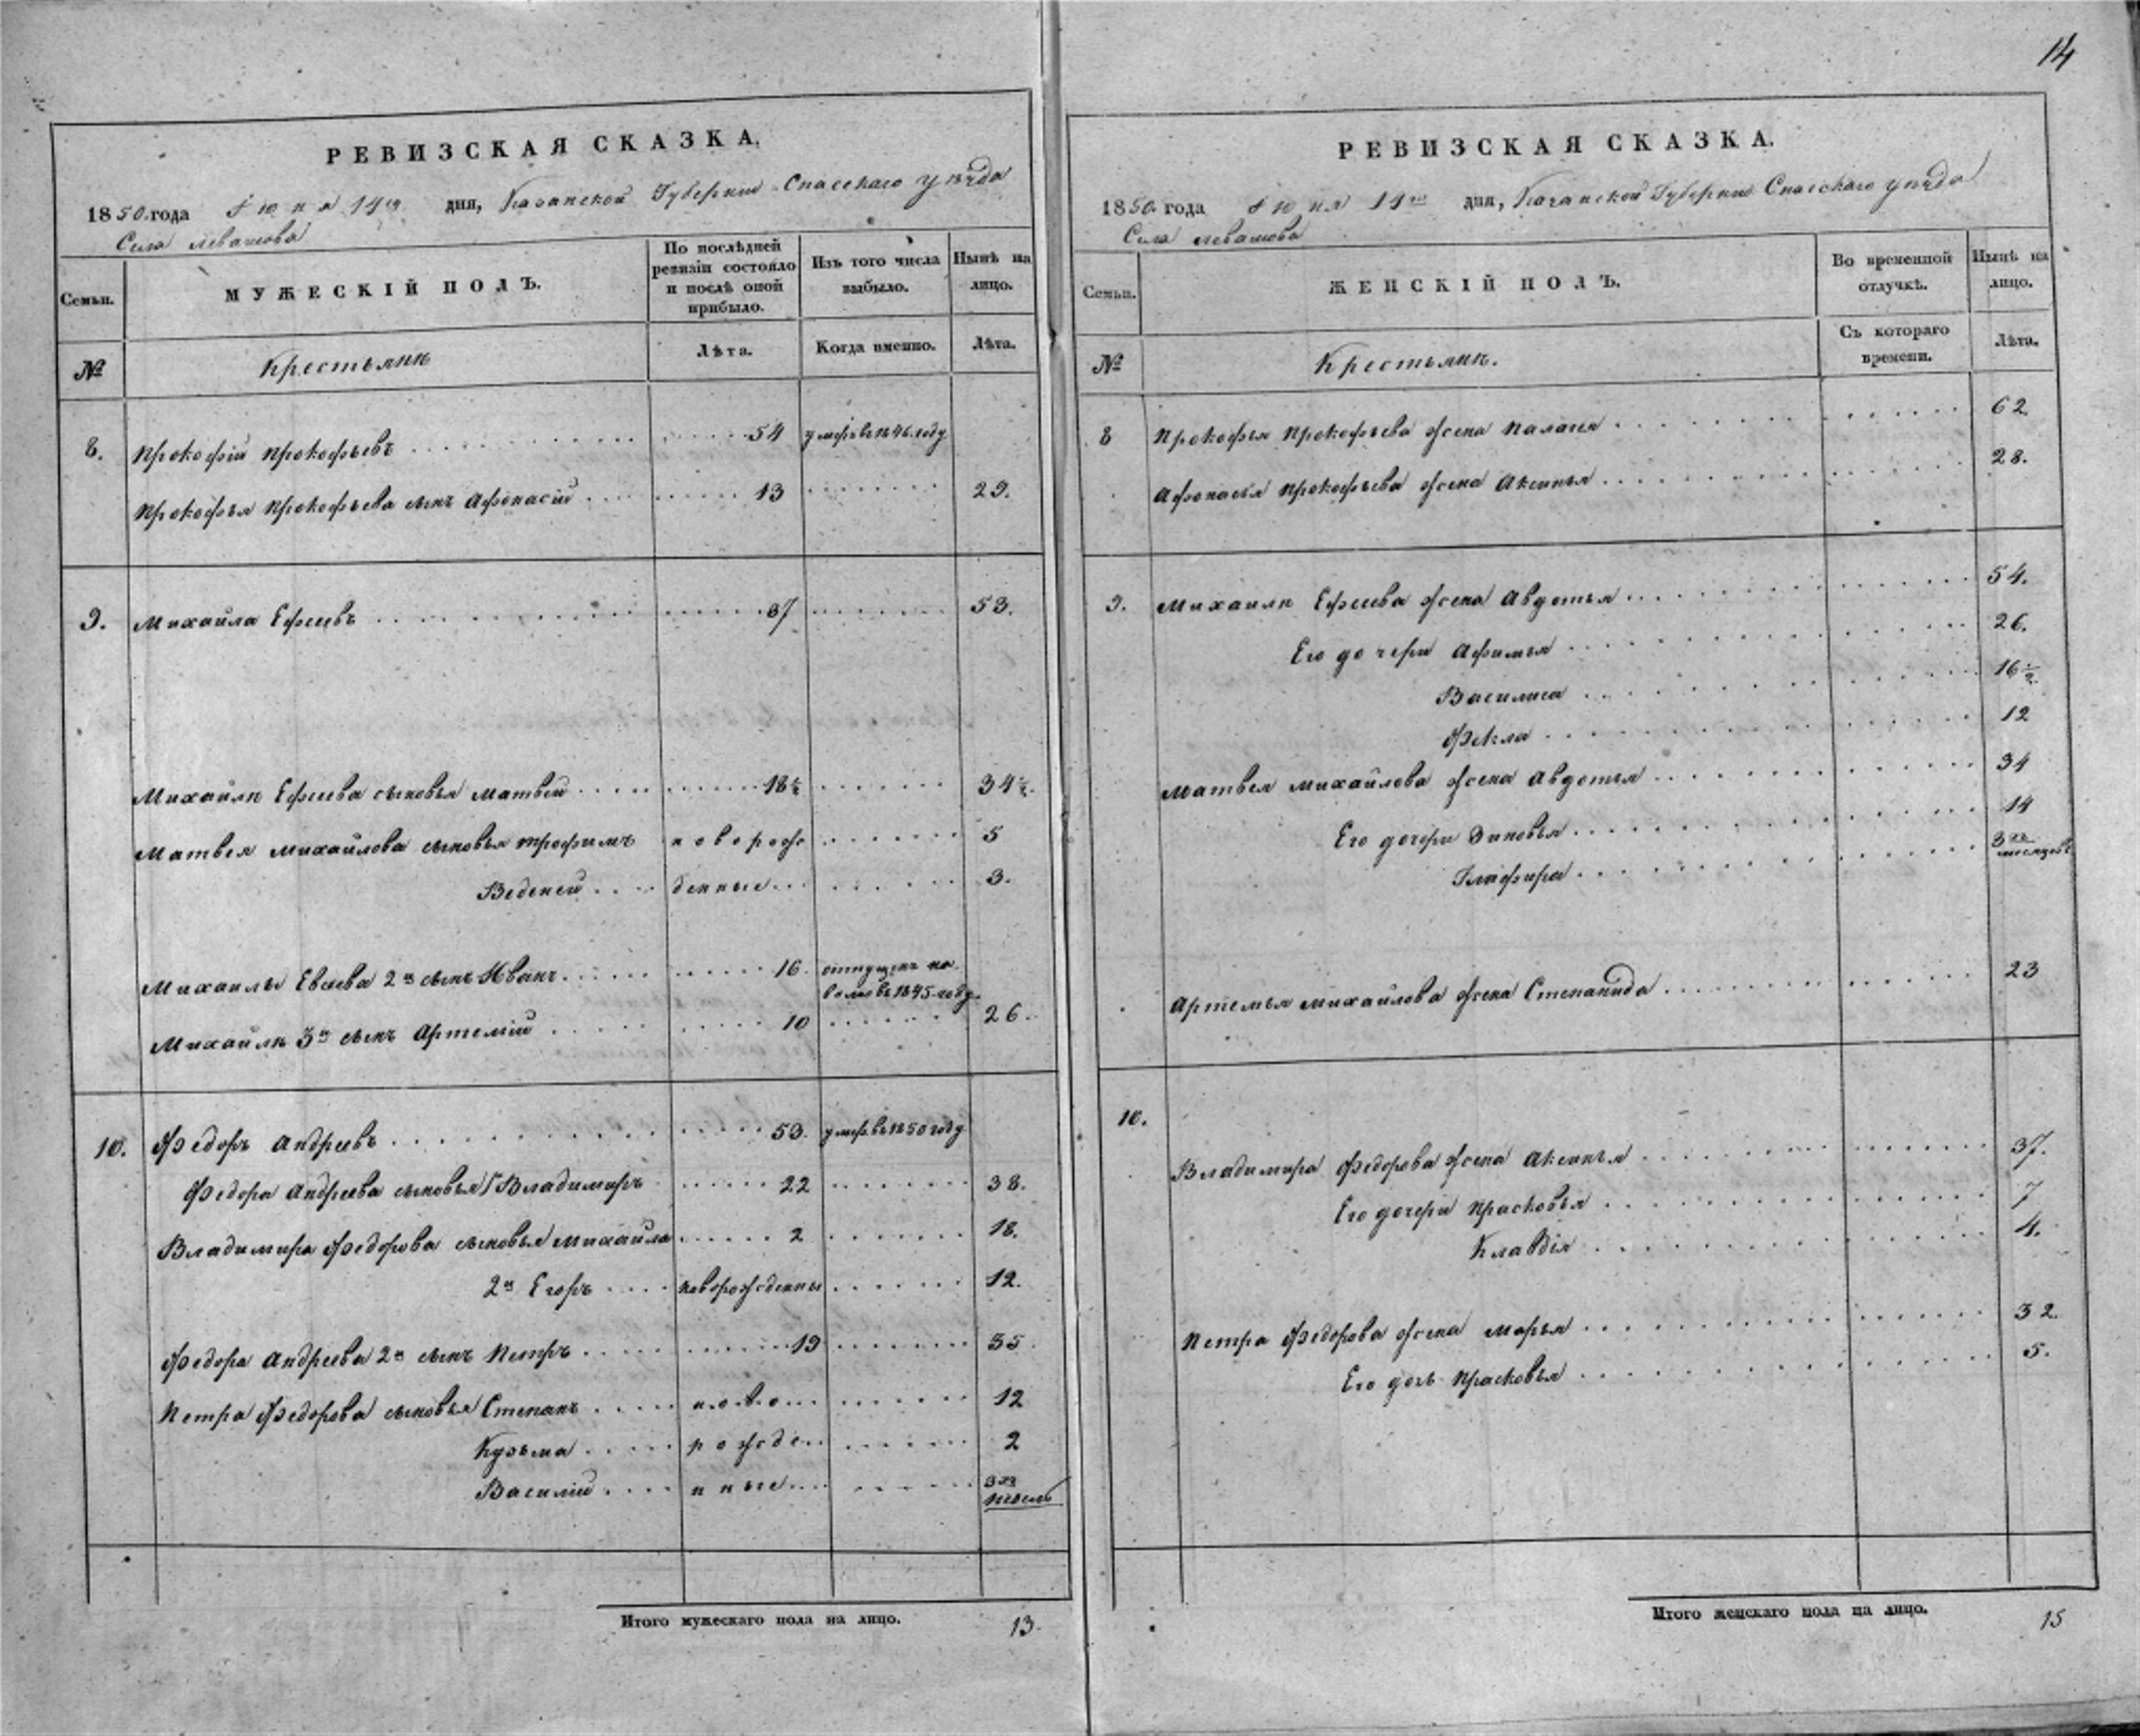 РЕВИЗСКАЯ СКАЗКА.
1850. года Іюня 14го дня, Казанской Губернии Спасскаго уѣзда
Села Левашова
Семьи.
МУЖЕСКІЙ ПОЛЪ.
По послѣдней ревизіи состояло и послѣ оной прибыло.
Изъ того числа выбыло.
Нынѣ на лицо.
№
Крестьянѣ
Лѣта.
Когда именно.
Лѣта.
8. Прокофій Прокофьевъ 54 умеръ въ 1846. году
Прокофья Прокофьева сынъ Афонасій 13 29.
9. Михайла Ефсевъ 37 53.
Михайлѣ Ефсева сыновья Матвей 18½ 34½.
Матвея Михайлова сыновья Трофимъ новорож 5
Веденей денные 3.
Михаилы Евсева 2й сынъ Иванъ 16. отпущенъ на волю въ 1845 году.
Михайлѣ 3й сынъ Артемій 10 26.
10. Федоръ Андреевъ 53. умеръ въ 1850 году
Федора Андреева сыновья 1 Владимиръ 22 38.
Владимира Федорова сыновья Михайла 2 18.
2й Егоръ новорожденны 12.
Федора Андреева 2й сынъ Петръ 19 35
Петра Федорова сыновья Степанъ ново 12
Кузьма рожде 2
Василій нные 3хъ недель
Итого мужескаго пола на лицо. 13.
14
РЕВИЗСКАЯ СКАЗКА.
1850. года Іюня 14го дня, Казанской Губернии Спасскаго уѣзда
Села Левашова
Семьи.
ЖЕНСКІЙ ПОЛЪ.
Во временной отлучкѣ.
Нынѣ на лицо.
№
Крестьянѣ.
Съ котораго времени.
Лѣта.
8 Прокофья Прокофьева жена Палагея 62
Афонасья Прокофьева жена Аксинья 28.
9. Михаилѣ Ефсева жена Авдотья 54.
Его дочери Афимья 26.
Василиса 16½
Фекла 12
Матвея Михайлова жена Авдотья 34
Его дочери Зиновья 14
Глафира 3хъ месяцовъ
Артемья Михайлова жена Степанида 23
10.
Владимира Федорова жена Аксинья 37.
Его дочери Прасковья 7
Клавдія 4.
Петра Федорова жена Марья 32.
Его дочь Прасковья 5.
Итого женскаго пола на лицо. 15